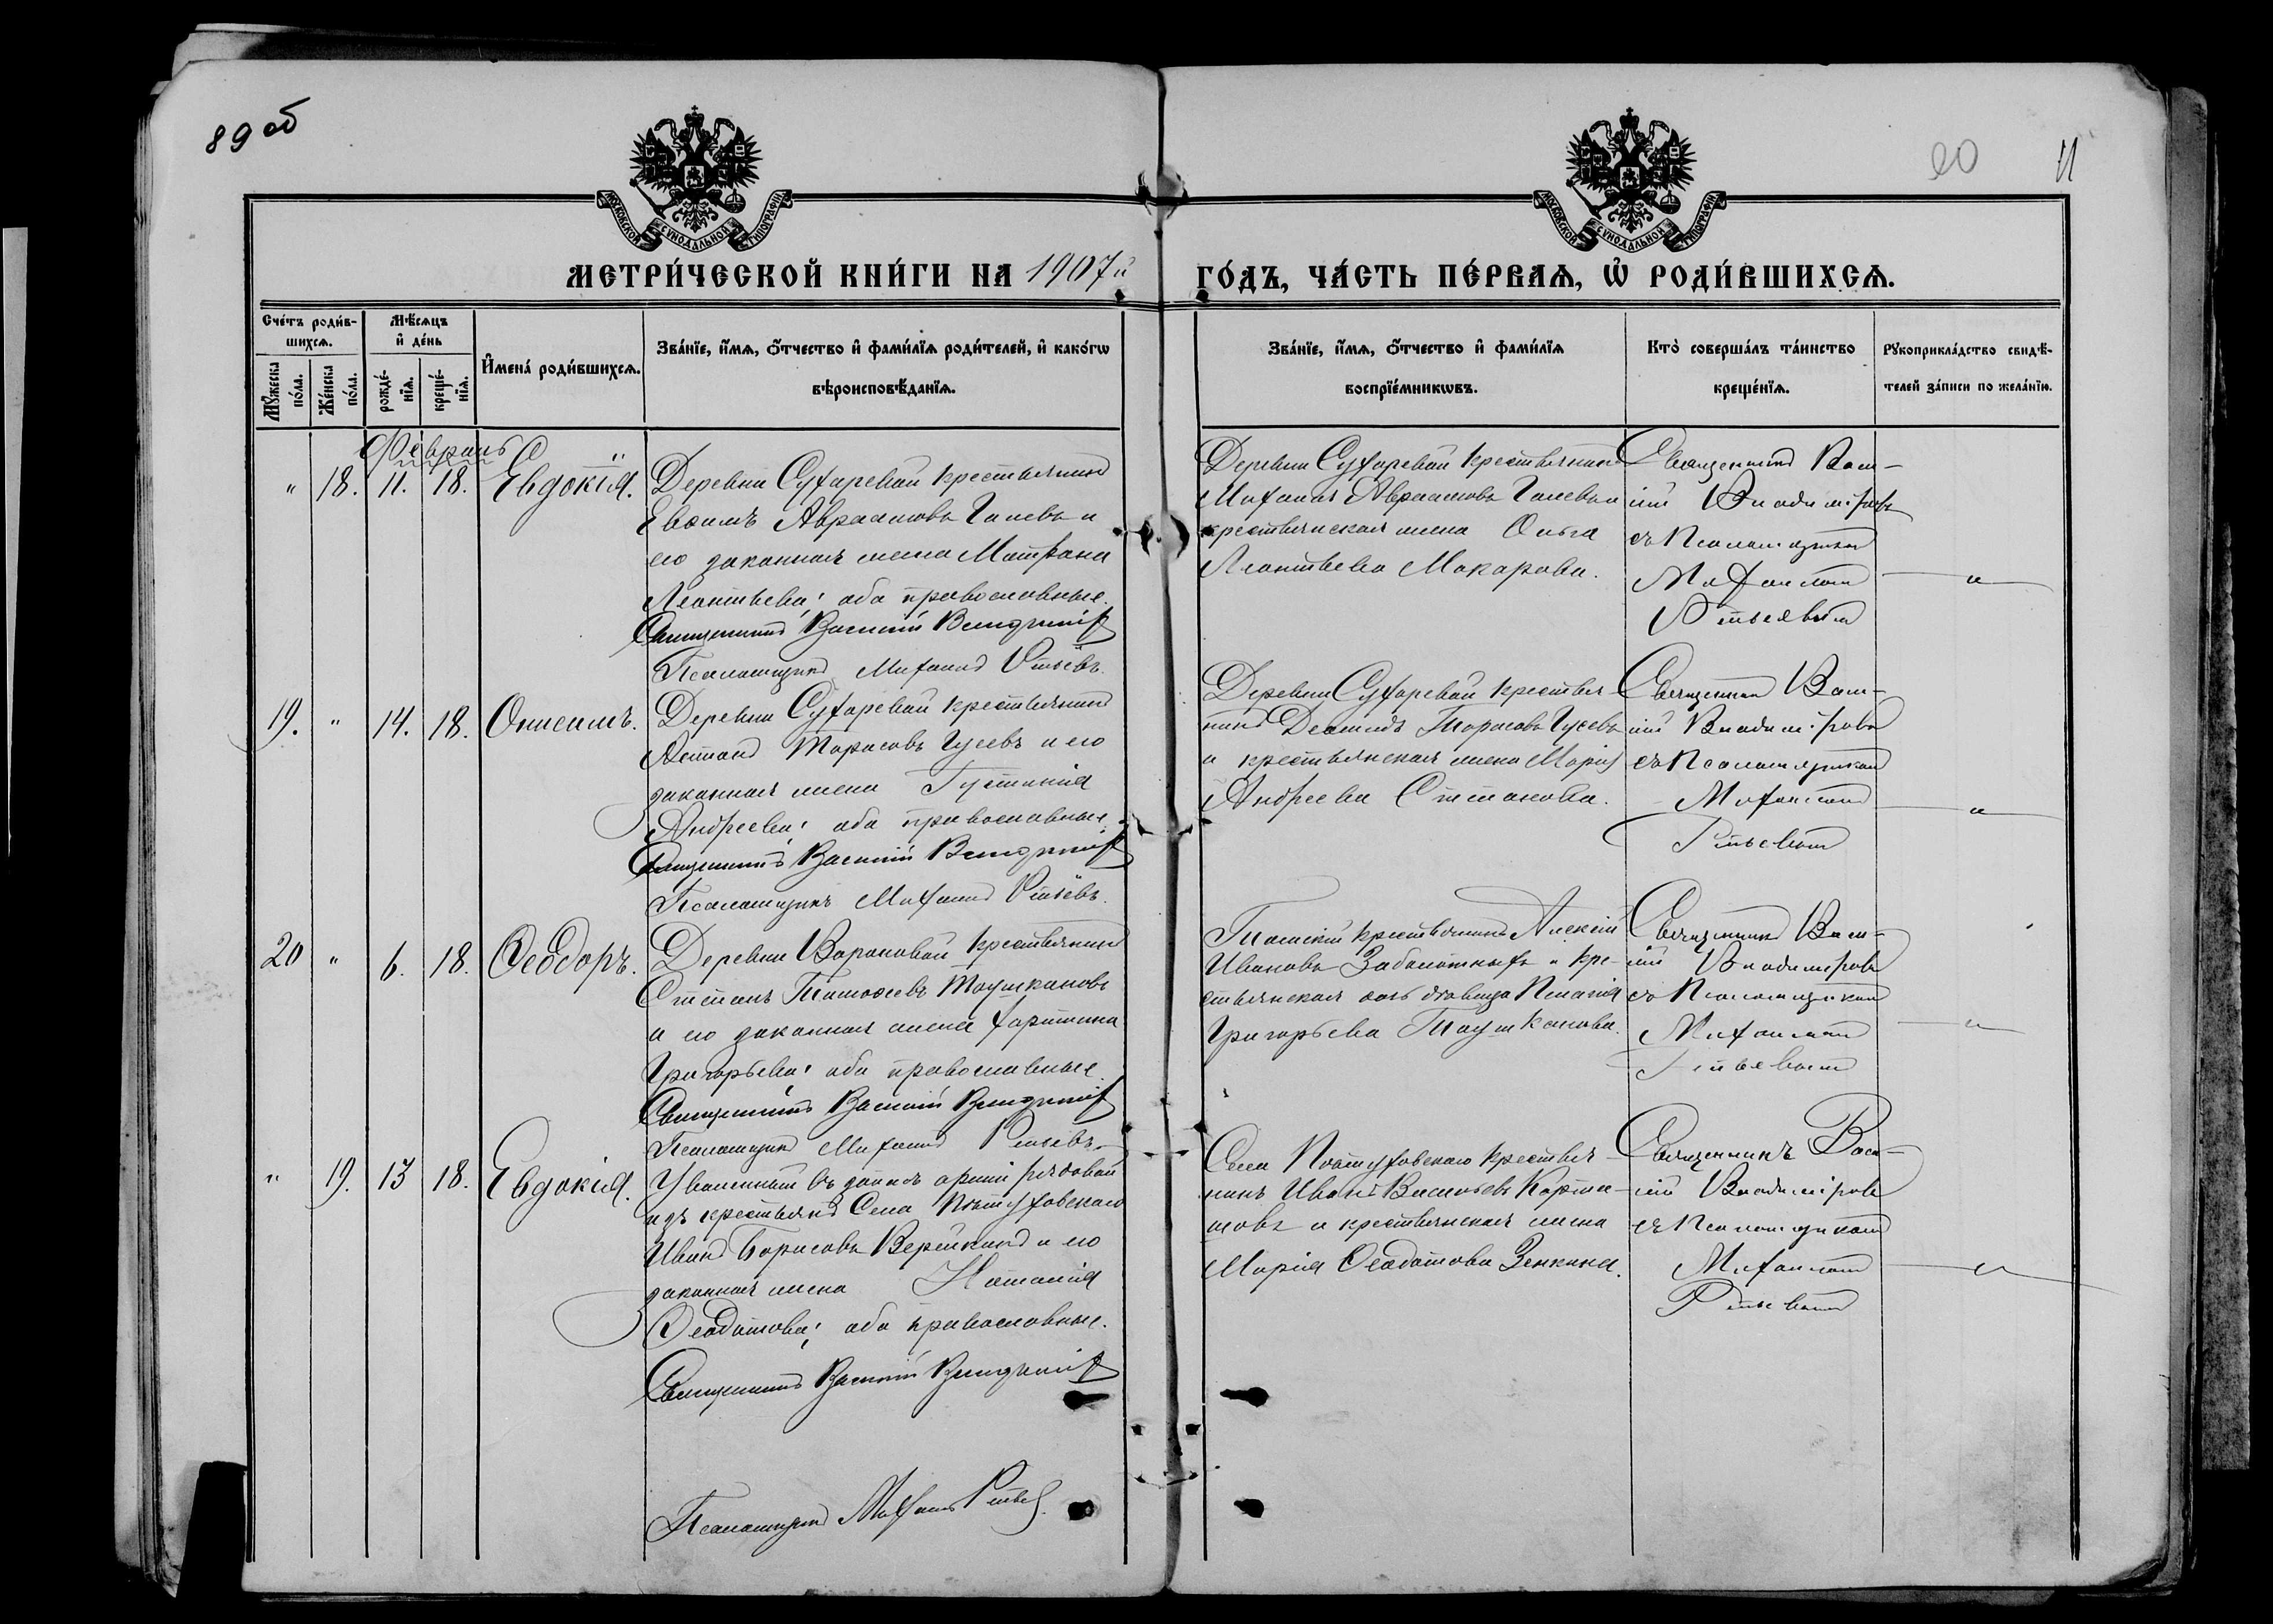 89 об
20
МОСКОВСКОЙ СѴНОДАЛЬНОЙ ТИПОГРАФІИ
МОСКОВСКОЙ СѴНОДАЛЬНОЙ ТИПОГРАФІИ
МЕТРИ́ЧЕСКОЙ КНИ́ГИ НА 1907й
ГО́ДЪ, ЧА́СТЬ ПЕ́РВАѦ, Ѡ҆ РОДИ́ВШИХСѦ.
Сче́тъ роди́в-
шихсѧ.
Мꙋ́жеска по́ла.
Же́нска по́ла.
Мѣ́сѧцъ
и҆ де́нь
рожде́-
нїѧ.
креще́-
нїѧ.
И҆мена̀ роди́вшихсѧ.
Зва́нїе, и҆́мѧ, ѻ҆́тчество и҆ фамі́лїѧ роди́телей, и҆ како́гѡ
вѣроисповѣ́данїѧ.
Зва́нїе, и҆́мѧ, ѻ҆́тчество и҆ фамі́лїѧ
воспрїе́мникѡвъ.
Кто̀ соверша́лъ та́инство
креще́нїѧ.
Рꙋкоприкла́дство свидѣ́-
телей за́писи по жела́нїю.
Февраль
" 18. 11. 18. Евдокія.
Деревни Сухаревой крестьянинъ
Евѳимъ Авраамовъ Галевъ и
его законная жена Матрона
Леонтьева; оба православные.
Священникъ Василій
Псаломщикъ Михаилъ
Деревни Сухаревой крестьянинъ
Михаилъ Авраамовъ Галевъ и
крестьянская жена Ольга
Леонтьева Макарова.
Священникъ Васи-
лій Владиміровъ
съ Псаломщикомъ
Михаиломъ
19. " 14. 18. Онисимъ.
Деревни Сухаревой крестьянинъ
Тарасовъ Гусевъ и его
законная жена Іустинія
Андреева; оба православные.
Священникъ Василій
Псаломщикъ Михаилъ
Деревни Сухаревой крестья-
нинъ Тарасовъ Гусевъ
и крестьянская жена Марія
Андреева Степанова.
Священникъ Васи-
лій Владиміровъ
съ Псаломщикомъ
Михаиломъ
20 " 6. 18. Ѳеодоръ.
Деревни Вороновой крестьянинъ
Степанъ Тимоѳеевъ Таушкановъ
и его законная жена Харитина
Григорьева; оба православные.
Священникъ Василій
Псаломщикъ Михаилъ
Томскій крестьянинъ Алексій
Ивановъ Заболотныхъ и кре-
стьянская вдовица Пелагія
Григорьева Таушканова.
Священникъ Васи-
лій Владиміровъ
съ Псаломщикомъ
Михаиломъ
" 19. 13 18. Евдокія.
Уволенный въ запасъ арміи рядовой
изъ крестьянъ Села
Иванъ Борисовъ и его
законная жена Наталія
Ѳеодотова; оба православные.
Священникъ Василій
Псаломщикъ Михаилъ
Села крестья-
нинъ Иванъ Васильевъ Карта-
шовъ и крестьянская жена
Марія Ѳеодотова Зенкина.
Священникъ Васи-
лій Владиміровъ
съ Псаломщикомъ
Михаиломъ